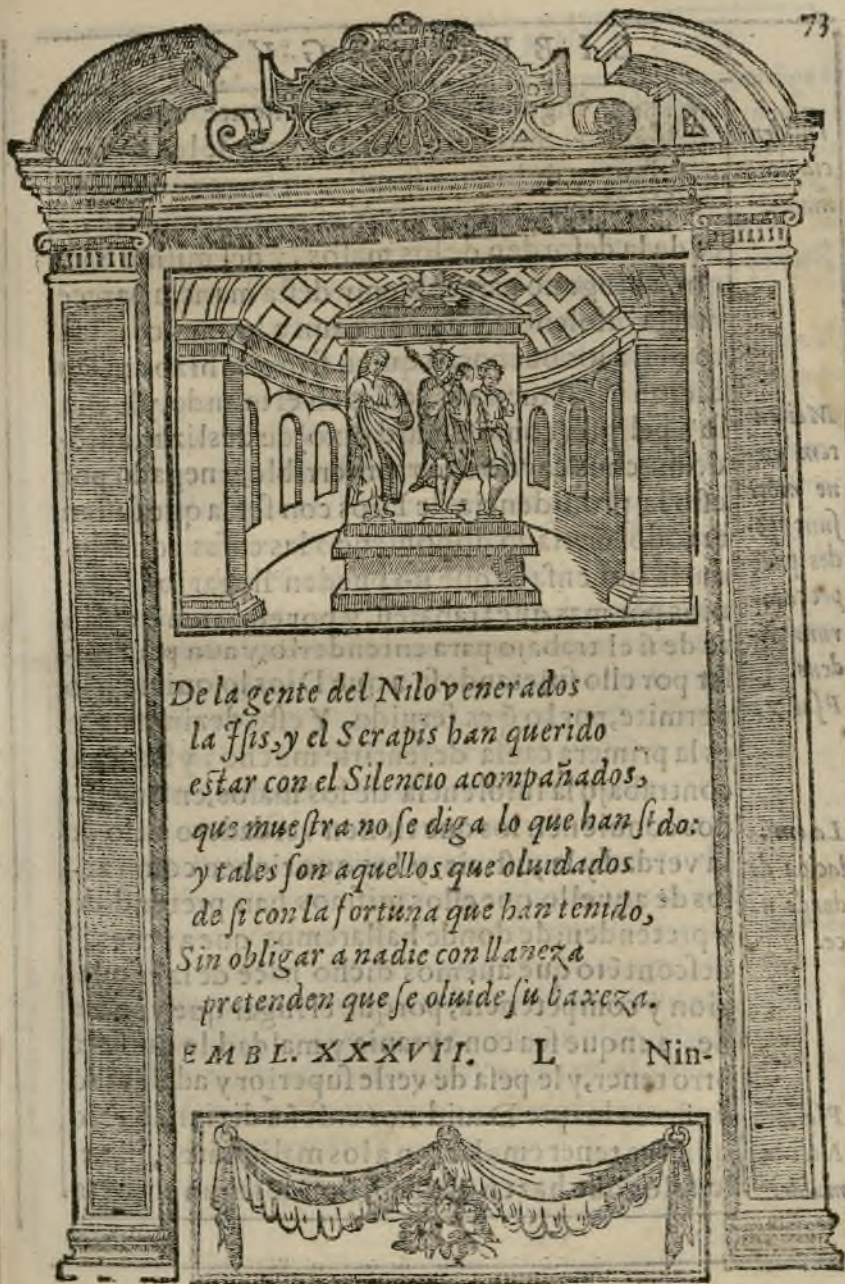 73
De la gente del Nilo venerados
la Isis, y el Serapis han querido
estar con el Silencio acompañados,
que muestra no se diga lo que han sido:
y tales son aquellos que oluidados
de si con la fortuna que han tenido,
Sin obligar a nadie con llaneza
pretenden que se oluide su baxeza.
EMBL. XXXVII. L Nin-